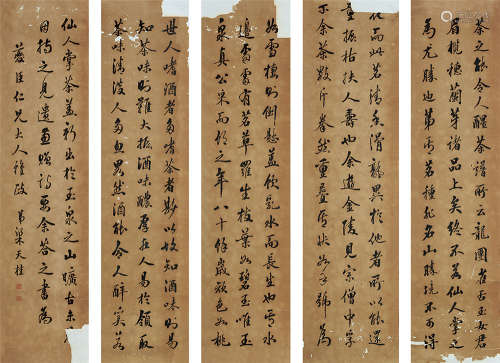 茶之能令人醒茶譜所云龍團雀舌玉女君
眉穗蘭芽諸品上矣終不若仙人掌之
為尤勝也第此茗種於名山勝境不可得
在而此茗清香滑熟異於他者所以能還
童振枯扶人壽也余遊金陵見宗僧中孚
示余茶數片拳然重疊有如手號為
如雪穗則倒懸蓋飲是水而長生也其水
邊處處有茗草羅生枝葉如碧玉唯玉
泉真公采而飲之年八十餘歲顏色如桃
世人嗜酒者多嗜茶者尠以故知酒味則易
知茶味則難大抵酒味醲厚在人易於領取
茶味清淡人多忽略然酒能令人醉寔若
仙人掌茶蓋新出於玉泉之山曠古未
因持之見遺兼贈詩要余答之書為
慈臣仁兄大人雅政 弟梁天桂